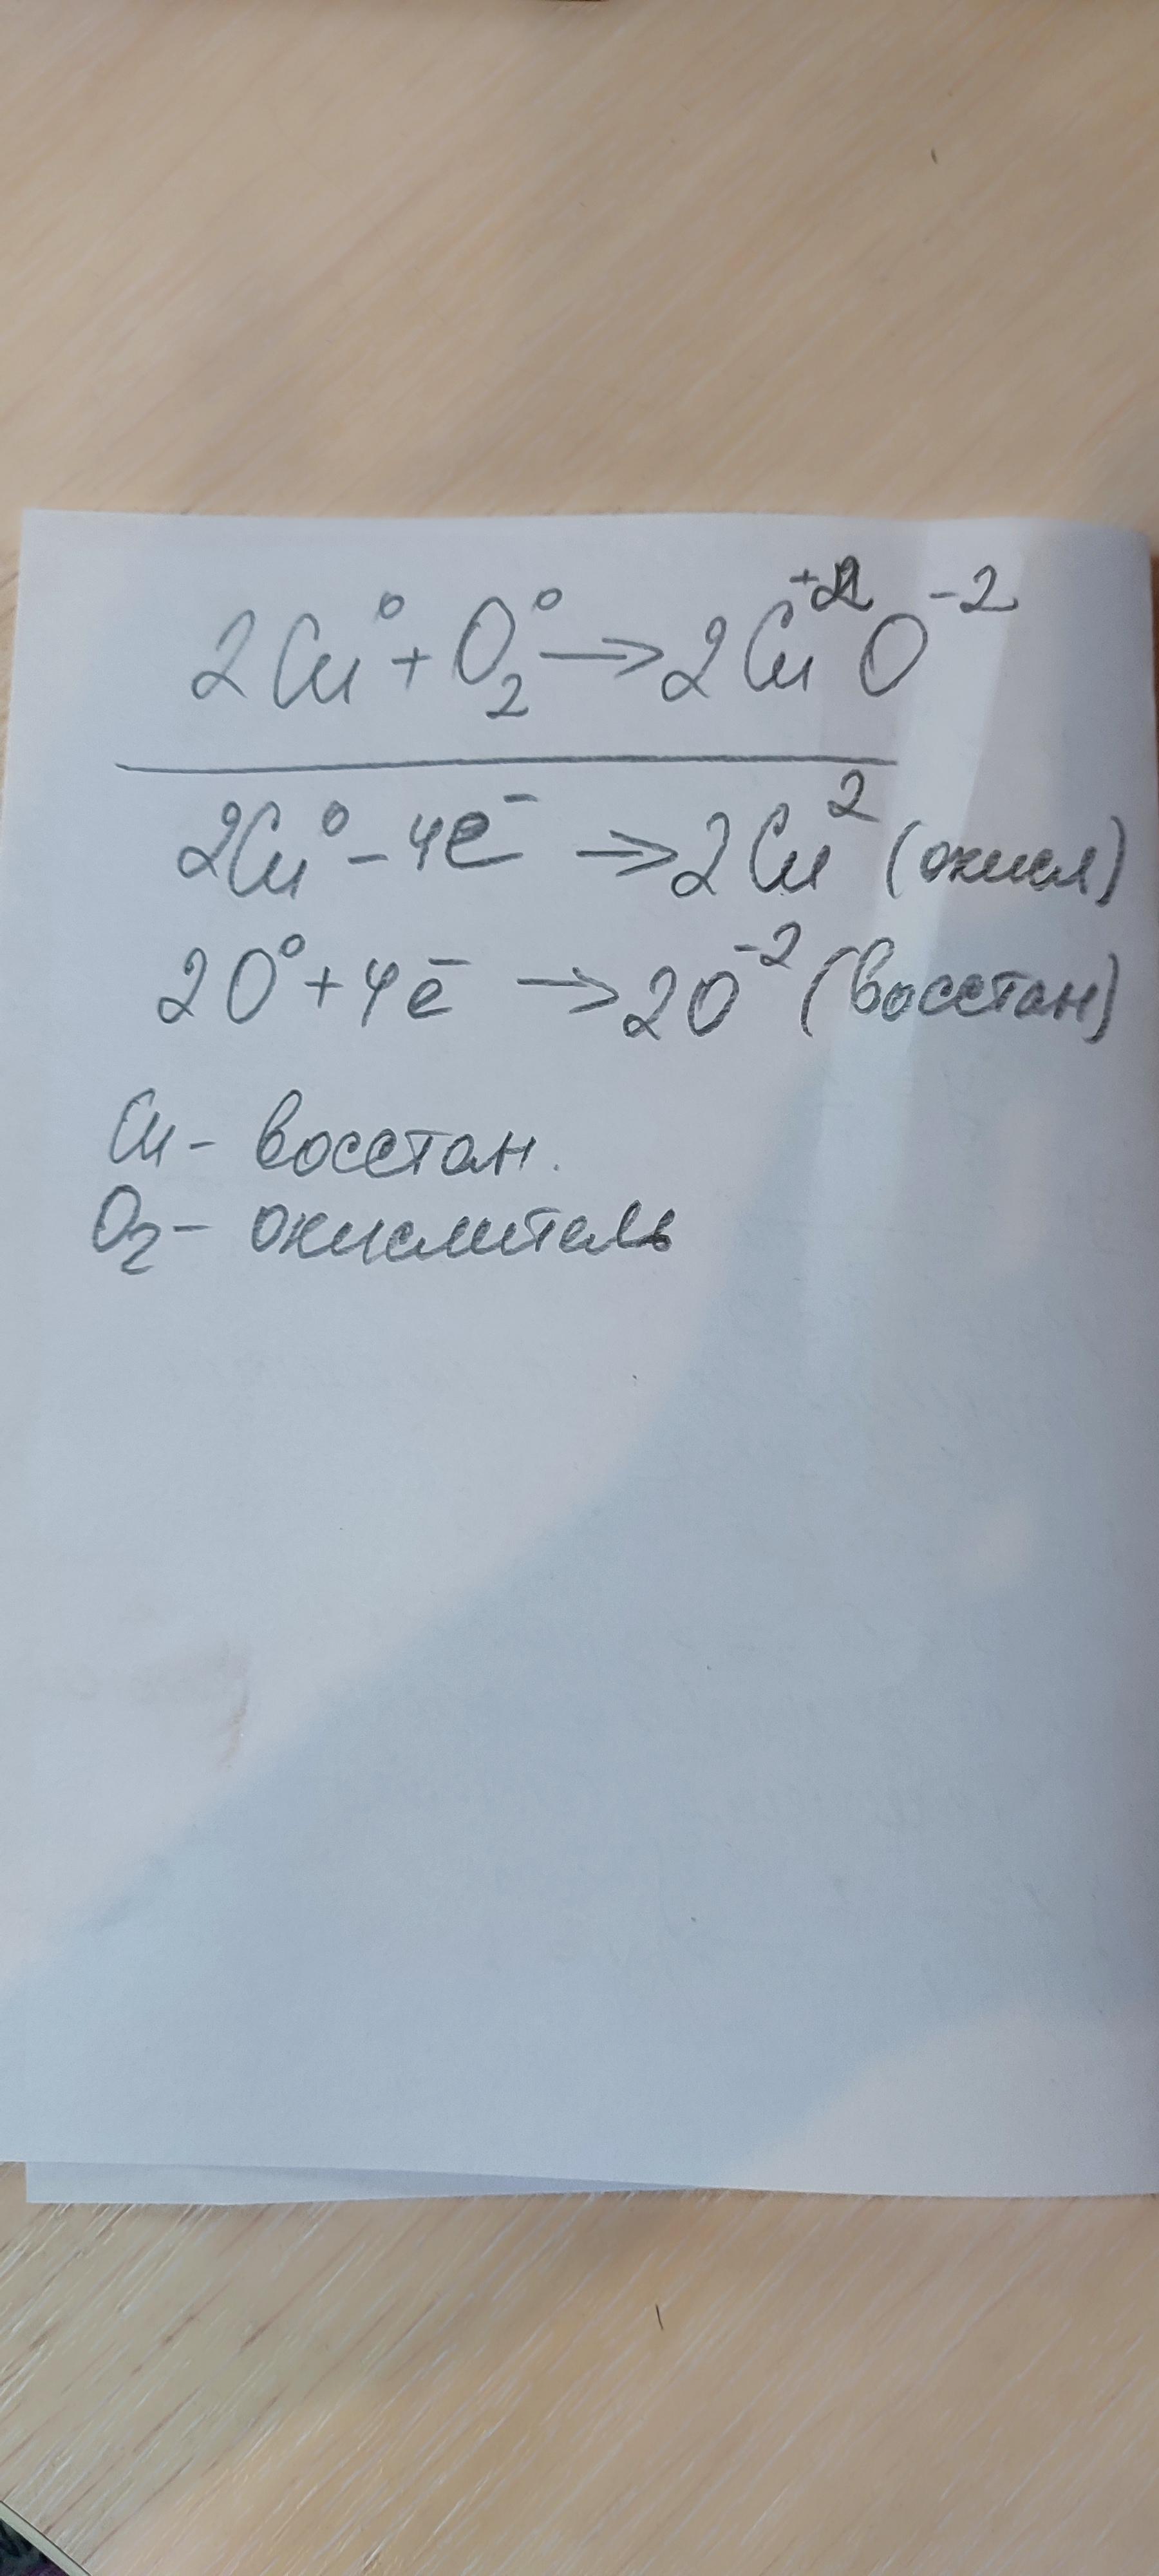 2Cu⁰ + O₂⁰ → 2Cu⁺²O⁻²
2Cu⁰ - 4e⁻ → 2Cu² (окисл)
2O⁰ + 4e⁻ → 2O⁻² (восстан)
Cu - восстан.
O₂ - окислитель